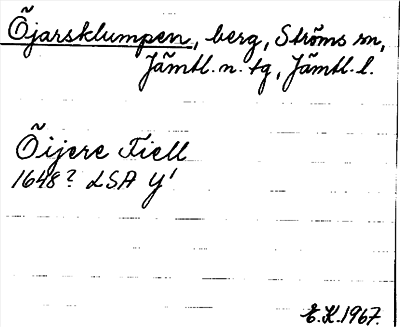 Öjarsklumpen, berg, Ströms sn,
Jämtl. n. tg, Jämtl. l.
Öijere Fiell
1648? LSA Y¹
E.K. 1967.